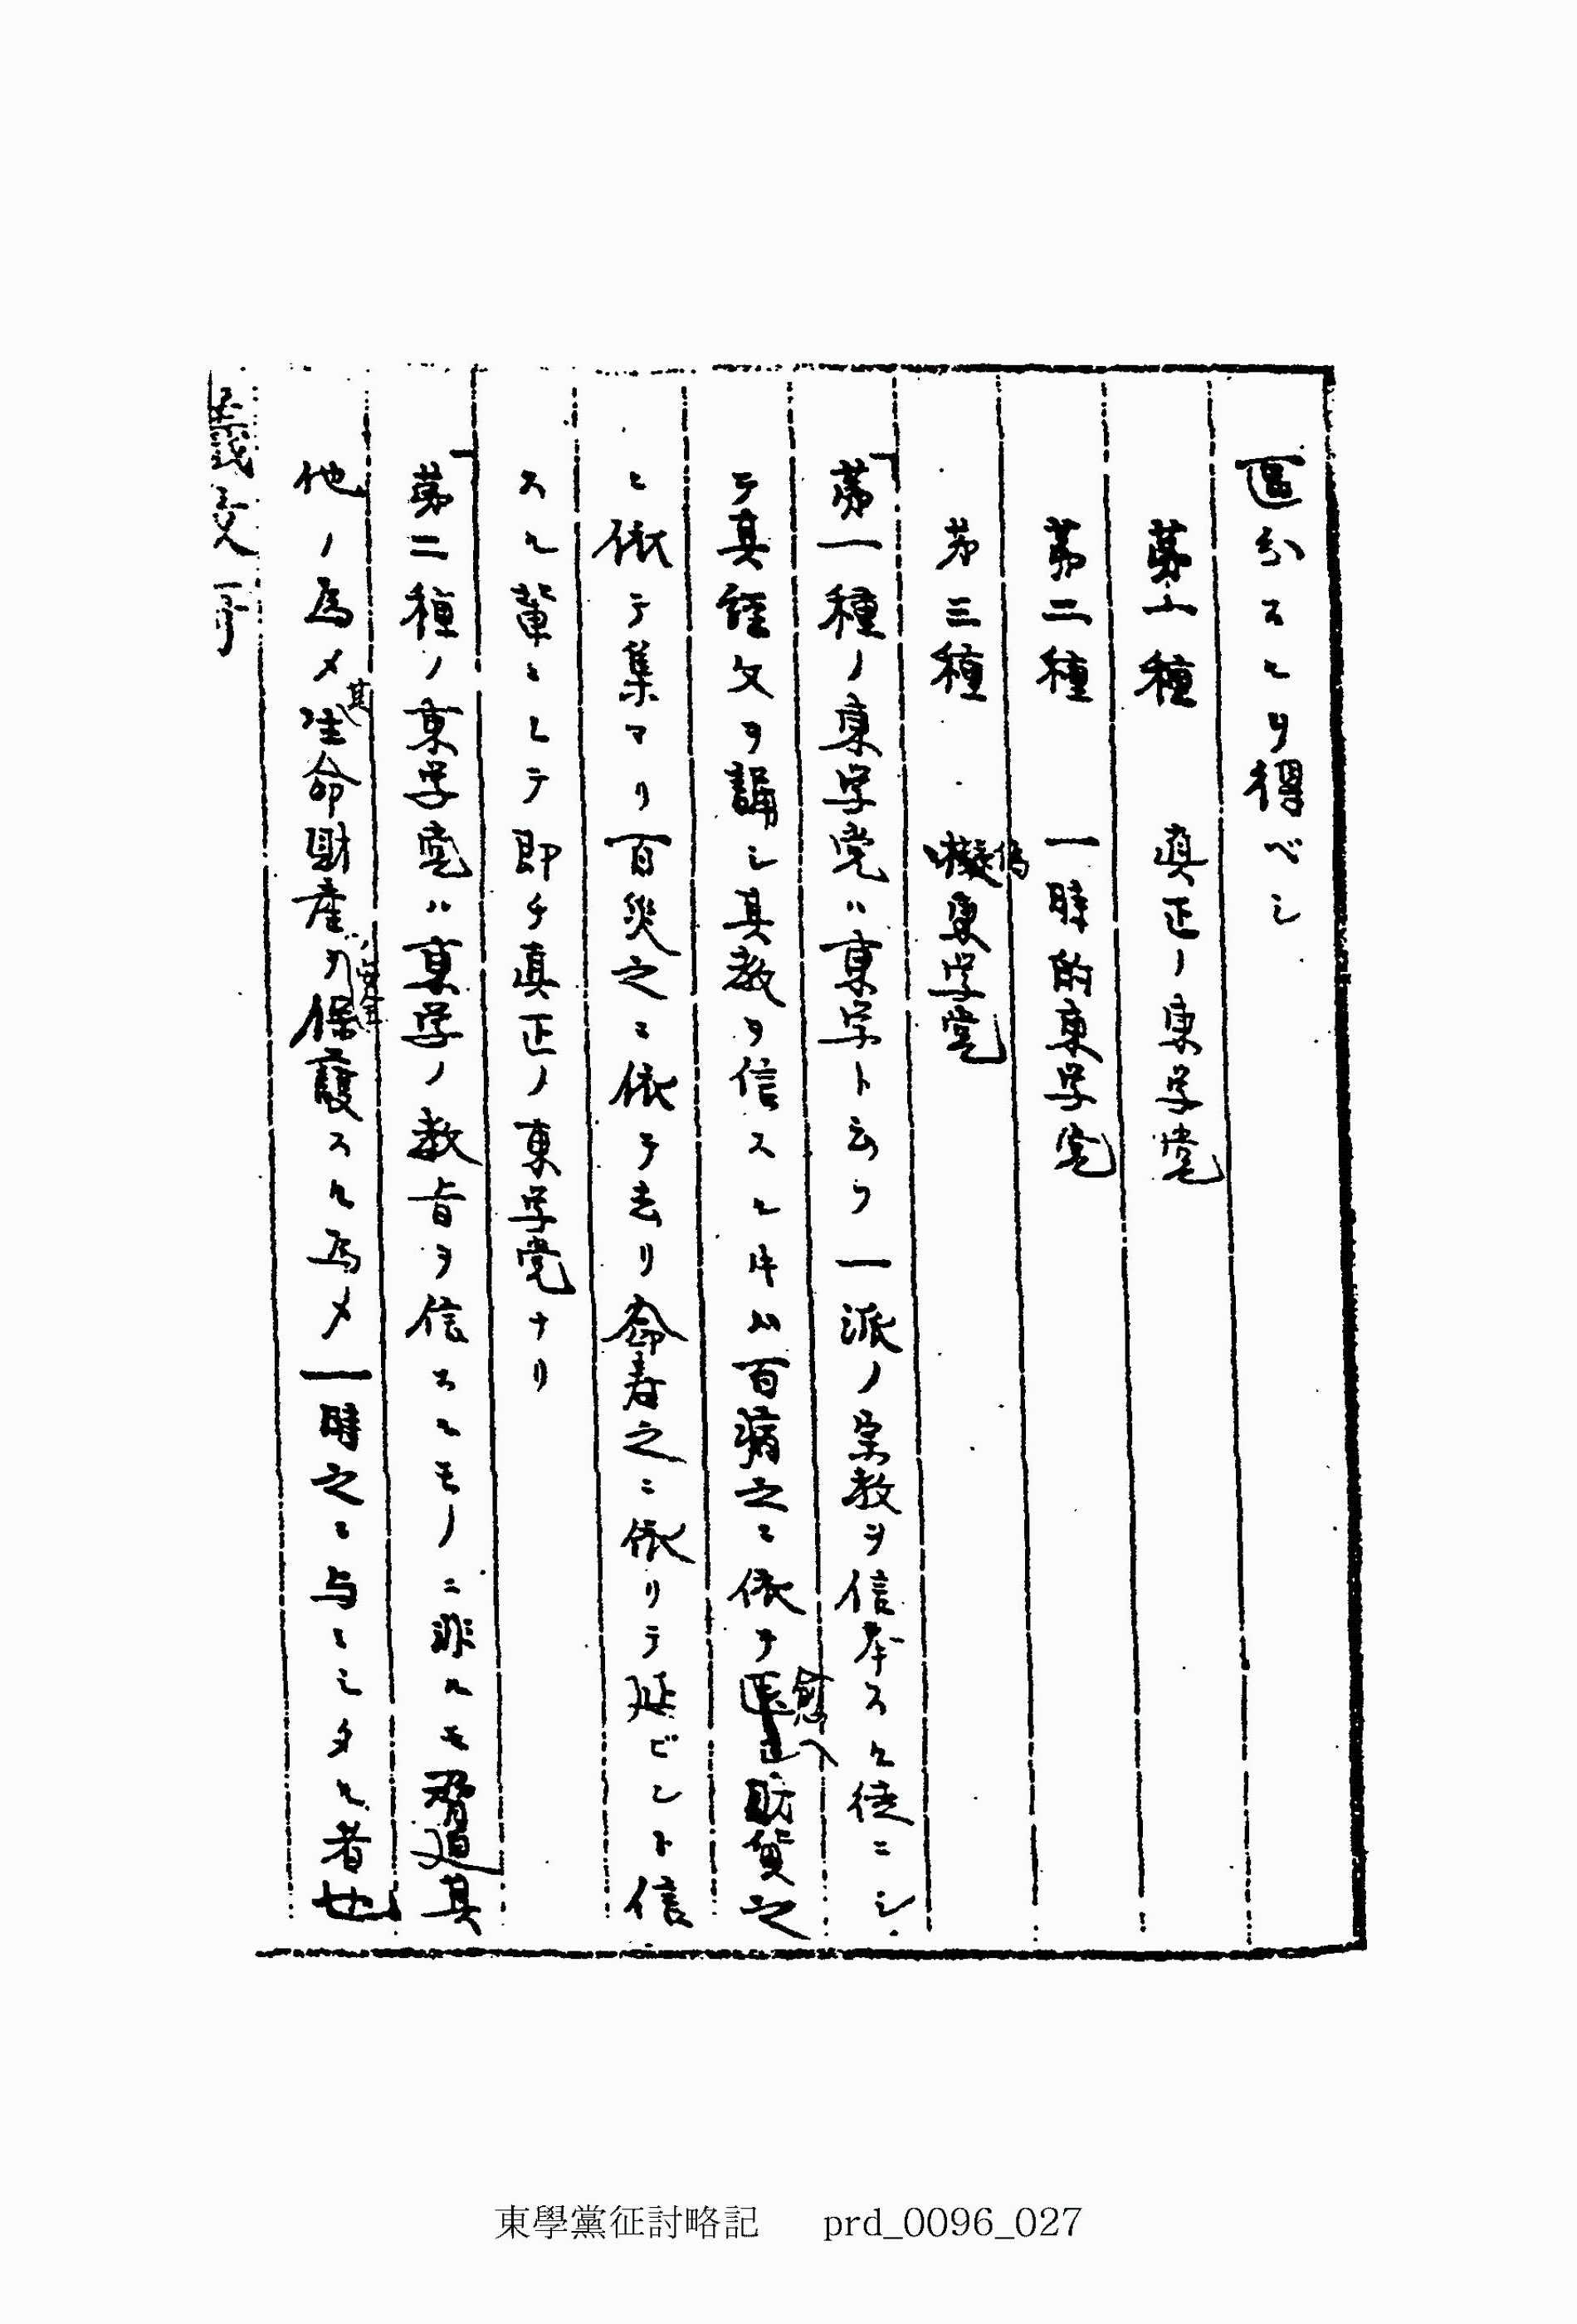 区分スルヲ得ベシ
第一種 真正ノ東学党
第二種 一時的東学党
第三種 偽東学党
第一種ノ東学党ハ東学ト云フ一派ノ宗教ヲ信奉スル徒ニシ
テ其経文ヲ誦シ其教ヲ信スルトキハ百病之ニ依テ愈へ財貨之
ニ依テ集マリ百災之ニ依テ去リ命寿之ニ依リテ延ビント信
スル輩ニシテ即チ真正ノ東学党ナリ
第二種ノ東学党ハ東学ノ教旨ヲ信スルモノニ非ルモ脅迫其
他ノ為メ其生命財産ヲ保護スル為メ一時之ニ与ミシタル者也
東學黨征討略記 prd_0096_027